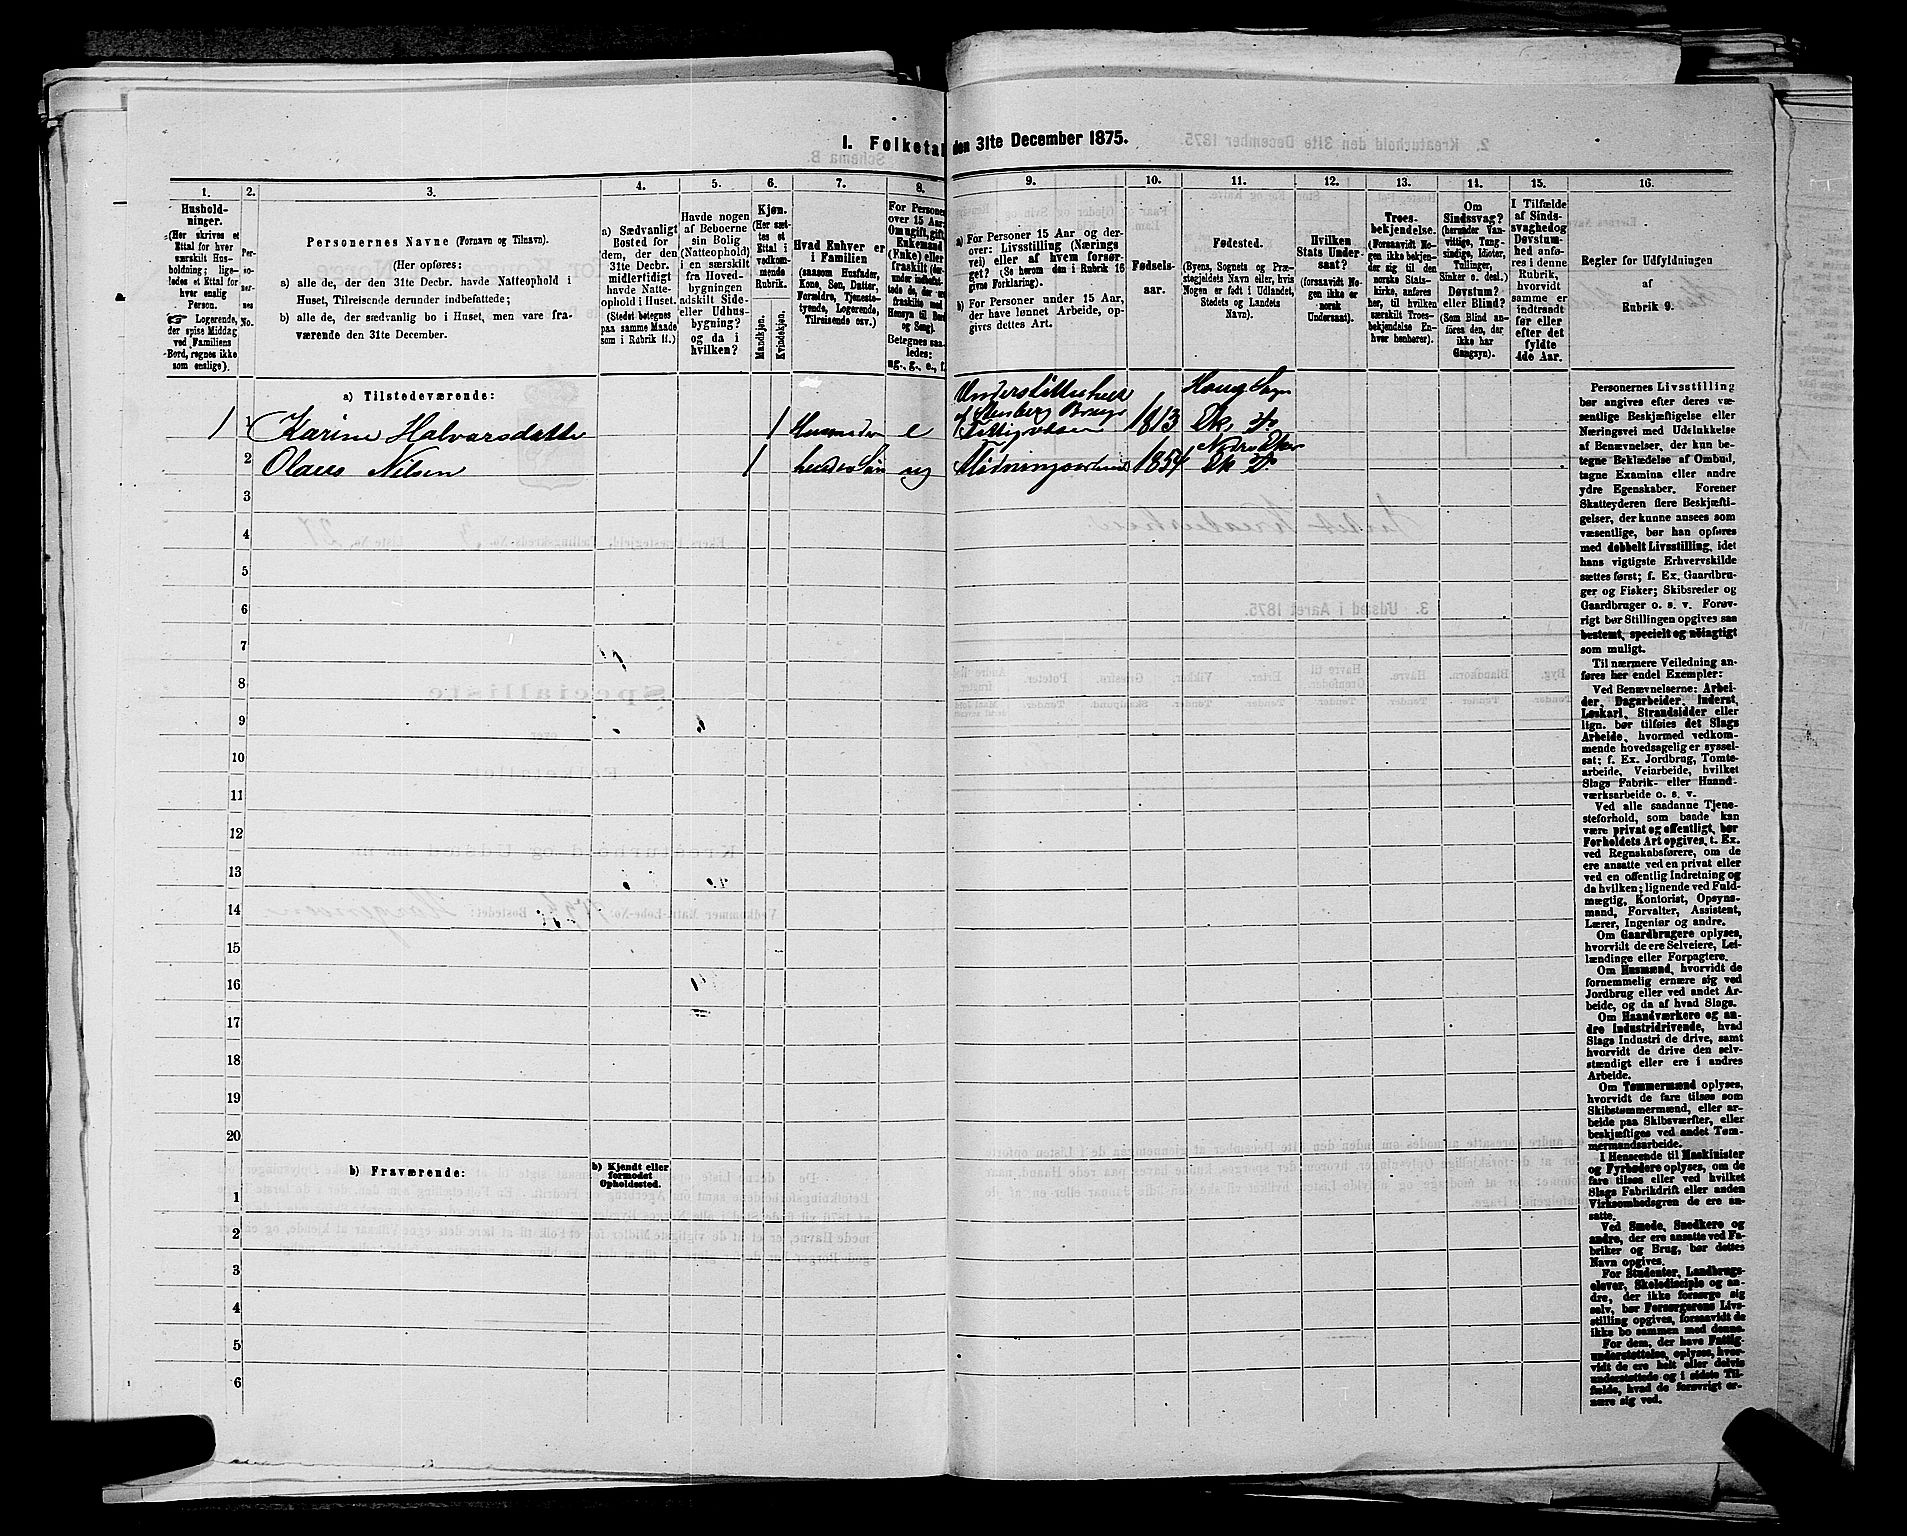 1. Folketal den 31te December 1875.
1. 2. 3. 4. 5. 6. 7. 8. 9. 10. 11. 12. 13. 14. 15. 16.
Hushold-
ninger.
(Her skrives et
Ettal for hver
særskilt Hus-
holdning; lige-
ledes et Ettal for
hver enslig
Person.
Logerende,
der spise Middag
ved Familiens
Bord, regnes ikke
som enslige).
Per-
so-
ner-
nes
No.
Personernes Navne (Fornavn og Tilnavn).
(Her opføres:
a) alle de, der den 31te Decbr. havde Natteophold i
Huset, Tilreisende derunder indbefattede;
b) alle de, der sædvanlig bo i Huset, men vare fra-
værende den 31te December.
a) Sædvanligt
Bosted for
dem, der den
31te Decbr.
midlertidigt
havde Natte-
ophold i Huset.
(Stedet betegnes
paa samme Maade
som i Rubrik 11.)
Havde nogen
af Beboerne
sin Bolig
(Natteophold)
i en særskilt
fra Hoved-
bygningen
adskilt Side-
eller Udhus-
bygning?
og da i
hvilken?
Kjøn.
(Her sæt-
tes et
Ettal i
vedkom-
mende
Rubrik.
Mandkjøn.
Kvindekjøn.
Hvad Enhver er
i Familien
(saasom Husfader,
Kone, Søn, Datter,
Forældre, Tjeneste-
tyende, Logerende,
Tilreisende osv.)
For Personer
over 15 Aar:
Om ugift, gift,
Enkemand
(Enke) eller
fraskilt
Betegnes saa-
ledes:
ug., g., e., f.
a) For Personer 15 Aar og der-
over: Livsstilling (Nærings
vei) eller af hvem forsør-
get? (Se herom den i Rubrik 16
givne Forklaring).
b) For Personer under 15 Aar,
der have lønnet Arbeide, op-
gives dettes Art.
Fødsels-
aar.
Fødested.
(Byens, Sognets og Præ-
stegjeldets Navn eller, hvis
Nogen er født i Udlandet,
Stedets og Landets
Navn).
Hvilken
Stats Under-
saat?
(forsaavidt No-
gen ikke er
norsk
Undersaat).
Troes-
bekjendelse.
(Forsaavidt No-
gen ikke bekjen-
der sig til den
norske Stats-
kirke, anføres
her, til hvilken
særskilt Troes-
bekjendelse En-
hver henhører).
Om
Sindssvag?
(herunder Van-
vittige, Tung-
sindige, Idioter,
Tullinger,
Sinker o. desl.)
Døvstum?
eller Blind?
(Som Blind an-
føres den, der
ikke har
Gangsyn).
I Tilfælde
af Sinds-
svaghed og
Døvstum-
hed anfø-
res i denne
Rubrik,
hvorvidt
samme er
indtraadt
før eller
efter det
fyldte
4de Aar.
Regler for Udfyldningen
af
Rubrik 9.
a) Tilstedeværende:
1 1 Karine Halvorsdatter 1 Husmoder e Fattigvæsen 1813 Haug Sogn Ek. Pr
2 Olaus Nilsen 1 hendes Søn ug 1854 Nedre Eker Ek Pr
3
4
5
6
7
8
9
10
11
12
13
14
15
16
17
18
19
20
b) Fraværende:
b) Kjendt eller
formodet
Opholdssted.
1
2
3
4
5
6
Personernes Livsstilling
bør angives efter deres væ-
sentlige Beskjæftigelse eller
Næringsvei med Udelukkelse
af Benævnelser, der kun be-
tegne Beklædelse af Ombud,
tagne Examina eller andre
ydre Egenskaber. Forener
Skatteyderen flere Beskjæfti-
gelser, der kunne ansees som
væsentlige, bør han opføres
med dobbelt Livsstilling, idet
hans vigtigste Erhvervskilde
sættes først; f. Ex. Gaardbru-
ger og Fisker; Skibsreder og
Gaardbruger o. s. v. Forøv-
rigt bør Stillingen opgives saa
bestemt, specielt og nøiagtigt
som muligt.
Til nærmere Veiledning an-
føres her endel Exempler:
Ved Benævnelserne: Arbei-
der, Dagarbeider, Inderst,
Løskarl, Strandsidder eller
lign. bør tilføies det Slags
Arbeide, hvormed vedkom-
mende hovedsagelig er syssel-
sat; f. Ex. Jordbrug, Tomte-
arbeide, Veiarbeide, hvilket
Slags Fabrik- eller Haand-
værksarbeide o. s. v.
Ved alle saadanne Tjene-
steforhold, som baade kan
være privat og offentligt, bør
Forholdets Art opgives, t. Ex.
ved Regnskabsførere, om de
ere ansatte ved en privat eller
ved en offentlig Indretning og
da hvilken; lignende ved Fuld-
mægtig, Kontorist, Opsyns-
mand, Forvalter, Assistent,
Lærer, Ingeniør og andre.
Om Gaardbrugere oplyses,
hvorvidt de ere Selveiere, Lei-
lændinge eller Forpagtere.
Om Husmænd, hvorvidt de
fornemmelig ernære sig ved
Jordbrug eller ved andet Ar-
beide, og da af hvad Slags.
Om Haandværkere og an-
dre Industridrivende, hvad
Slags Industri de drive, samt
hvorvidt de drive den selv-
stændigt eller ere i andres
Arbeide.
Om Tømmermænd oplyses,
hvorvidt de fare tilsøs som
Skibstømmermænd, eller ar-
beide paa Skibsværfter, eller
beskjæftiges ved andet Tøm-
mermandsarbeide.
I Henseende til Maskinister
og Fyrbødere oplyses, om de
fare tilsøs eller ved hvilket
Slags Fabrikdrift eller anden
Virksomhedsgren de ere an-
satte.
Ved Smede, Snedkere og
andre, der ere ansatte ved Fa-
briker og Brug, bør dettes
Navn opgives.
For Studenter, Landbrugs-
elever, Skoledisciple og an-
dre, der ikke forsørge sig
selv, bør Forsørgerens Livs-
stilling opgives, forsaavidt de
ikke bo sammen med denne.
For dem, der have Fattig-
understøttelse, oplyses, hvor-
vidt de ere helt eller delvis
understøttede og i sidste Til-
fælde, hvad de forøvrigt er-
nære sig ved.